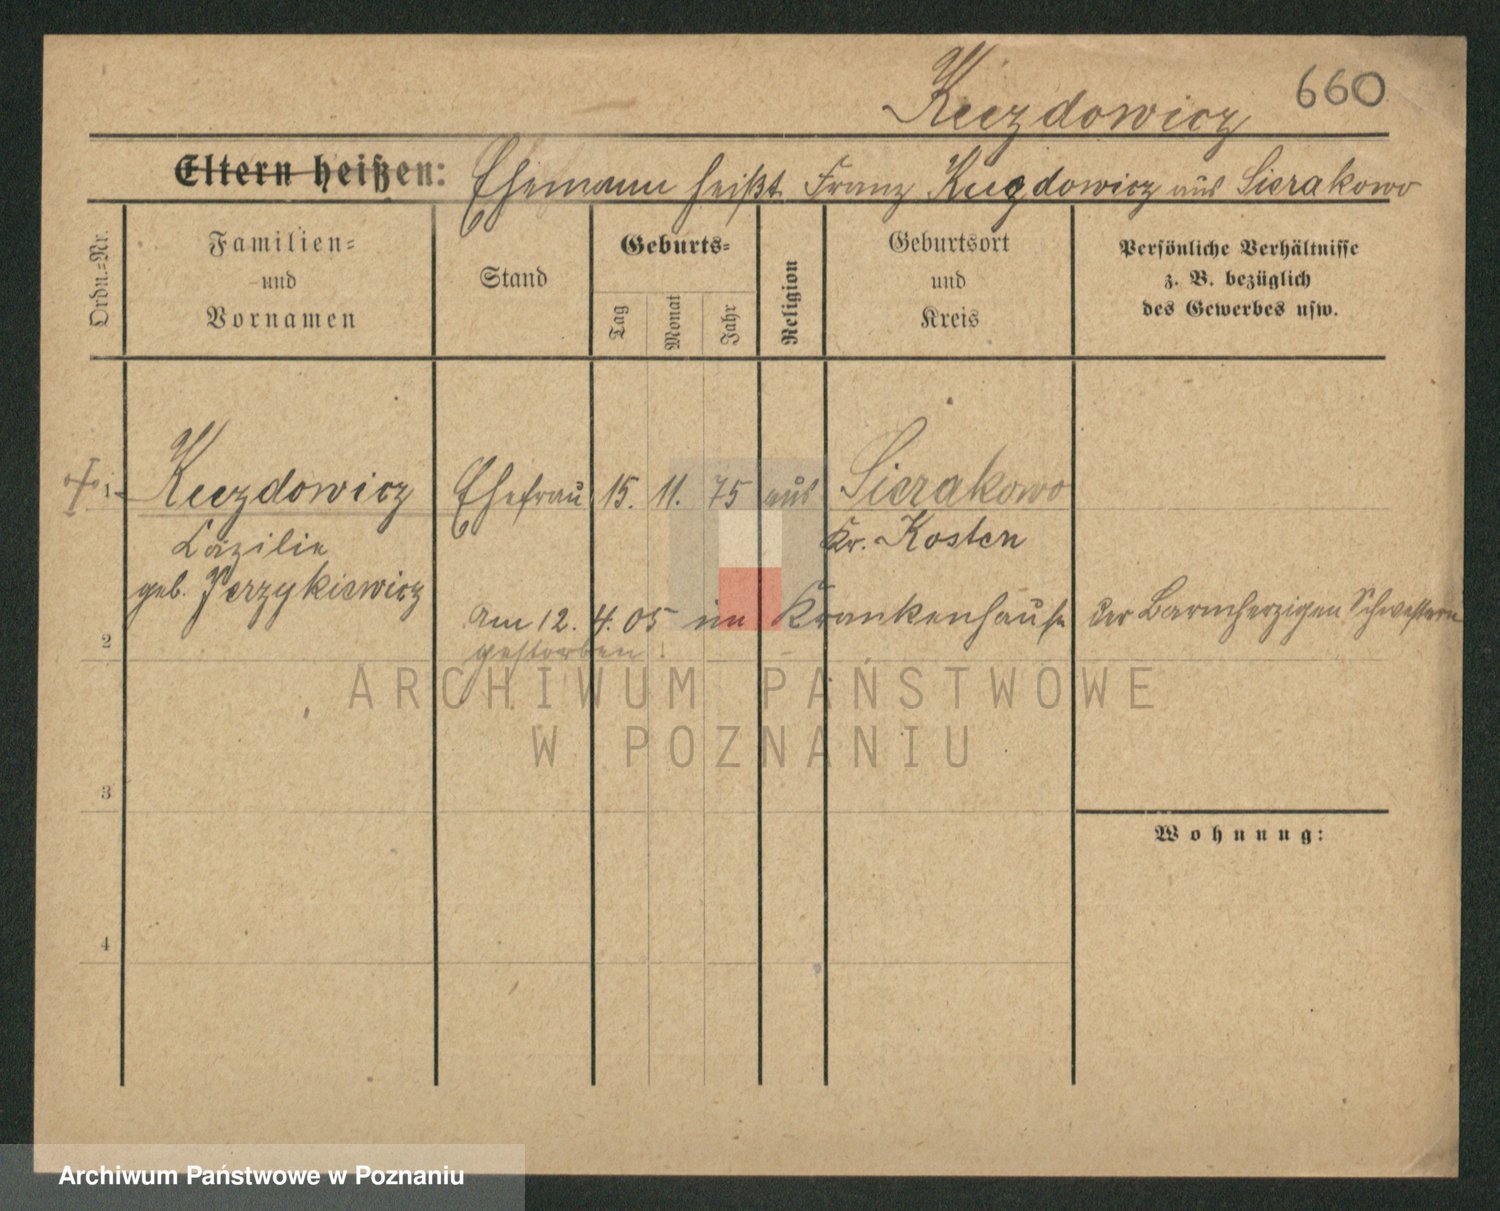 660
Kuczdowicz
Eltern heißen: Ehemann heißt Franz Kuczdowicz aus Sierakowo
Ordn.=Nr.
Familien=
und
Vornamen
Stand
Geburts=
Tag
Monat
Jahr
Religion
Geburtsort
und
Kreis
Persönliche Verhältnisse
z. B. bezüglich
des Gewerbes usw.
1 Kuczdowicz Ehefrau 15. 11. 75 aus Sierakowo
Cäzilie Kr. Kosten
geb. Jerzykiewicz
2 Am 12. 4. 05 im Krankenhause der Barmherzigen Schwestern
gestorben!
3
Wohnung:
4
ARCHIWUM PAŃSTWOWE
W POZNANIU
Archiwum Państwowe w Poznaniu